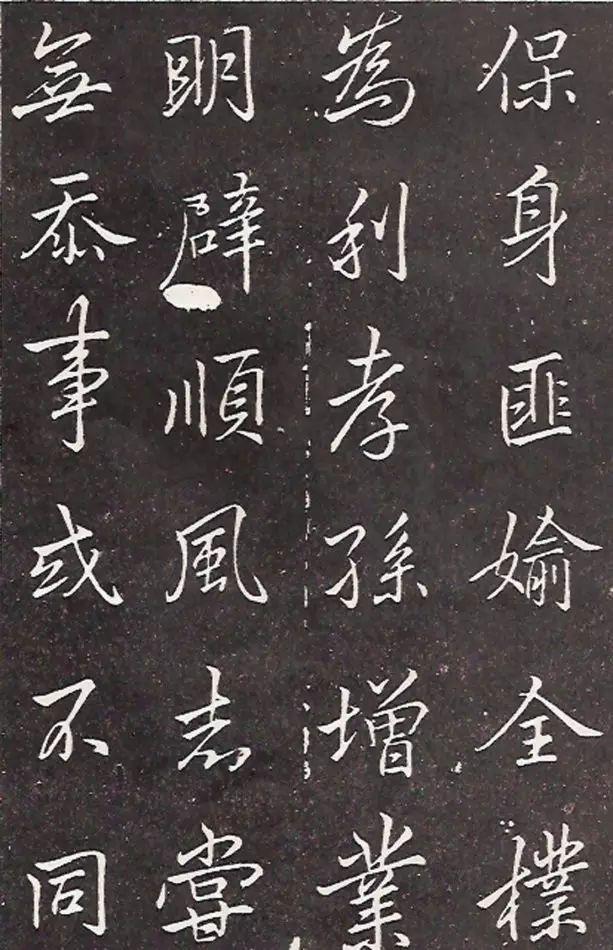 保身匪媮全樸
為利孝孫增業
明辟順風志嘗
無忝事或不同